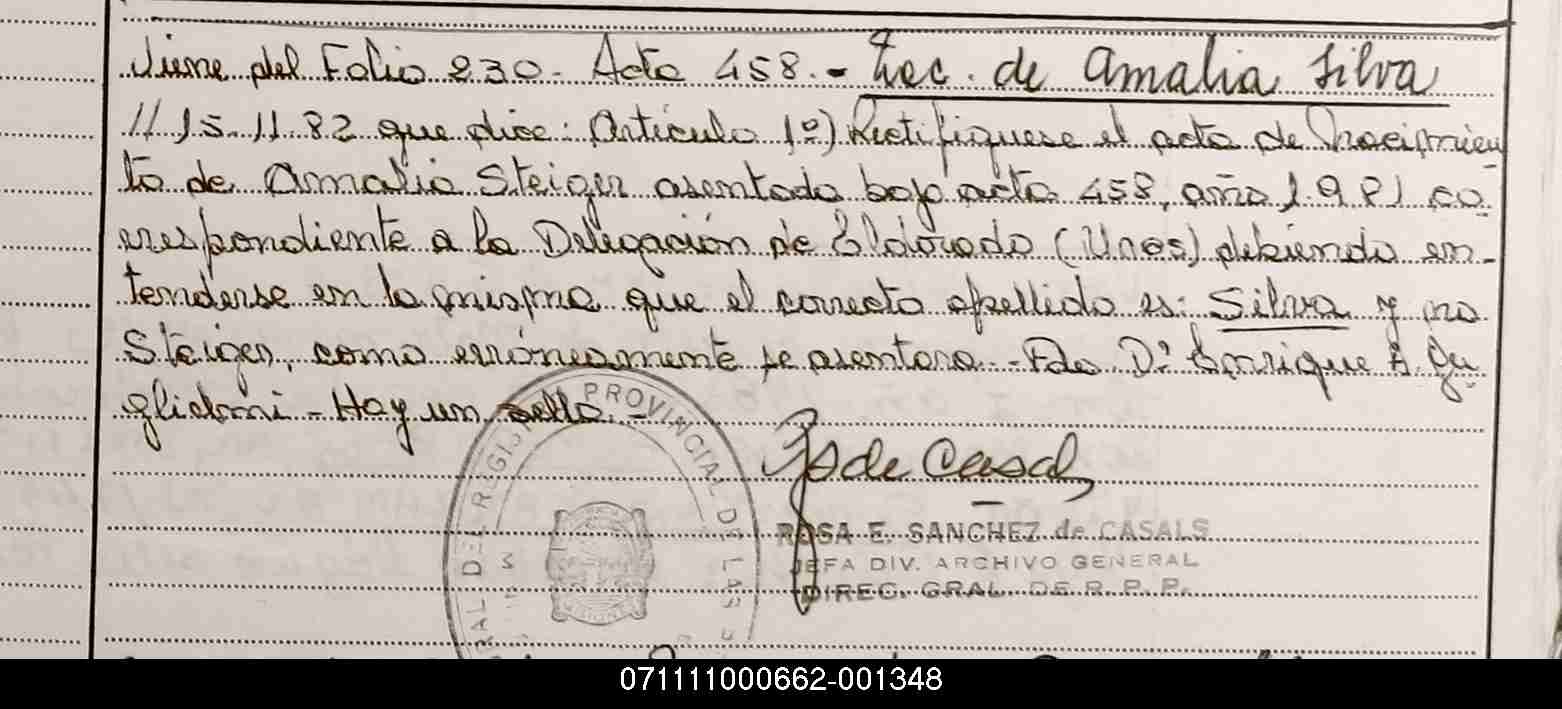 Viene del Folio 230 - Acta 458.- Rec. de Amalia Silva
// 15.11.82 que dice: Artículo 1º) Rectifíquese el acta de Nacimien
to de Amalia Steiger asentada bajo acta 458, año 1.981 co
rrespondiente a la Delegación de Eldorado (Mnes) debiendo en-
tenderse en la misma que el correcto apellido es: Silva y no
Steiger, como erróneamente se asentara.- Fdo. Dr. Enrique A. Gu
glielmi - Hay un sello.-
RS de Casals
ROSA E. SANCHEZ de CASALS
JEFA DIV. ARCHIVO GENERAL
DIREC. GRAL. DE R. P. P.
RAL DEL REGIS PROVINCIAL DE LAS
MISIONES
071111000662-001348